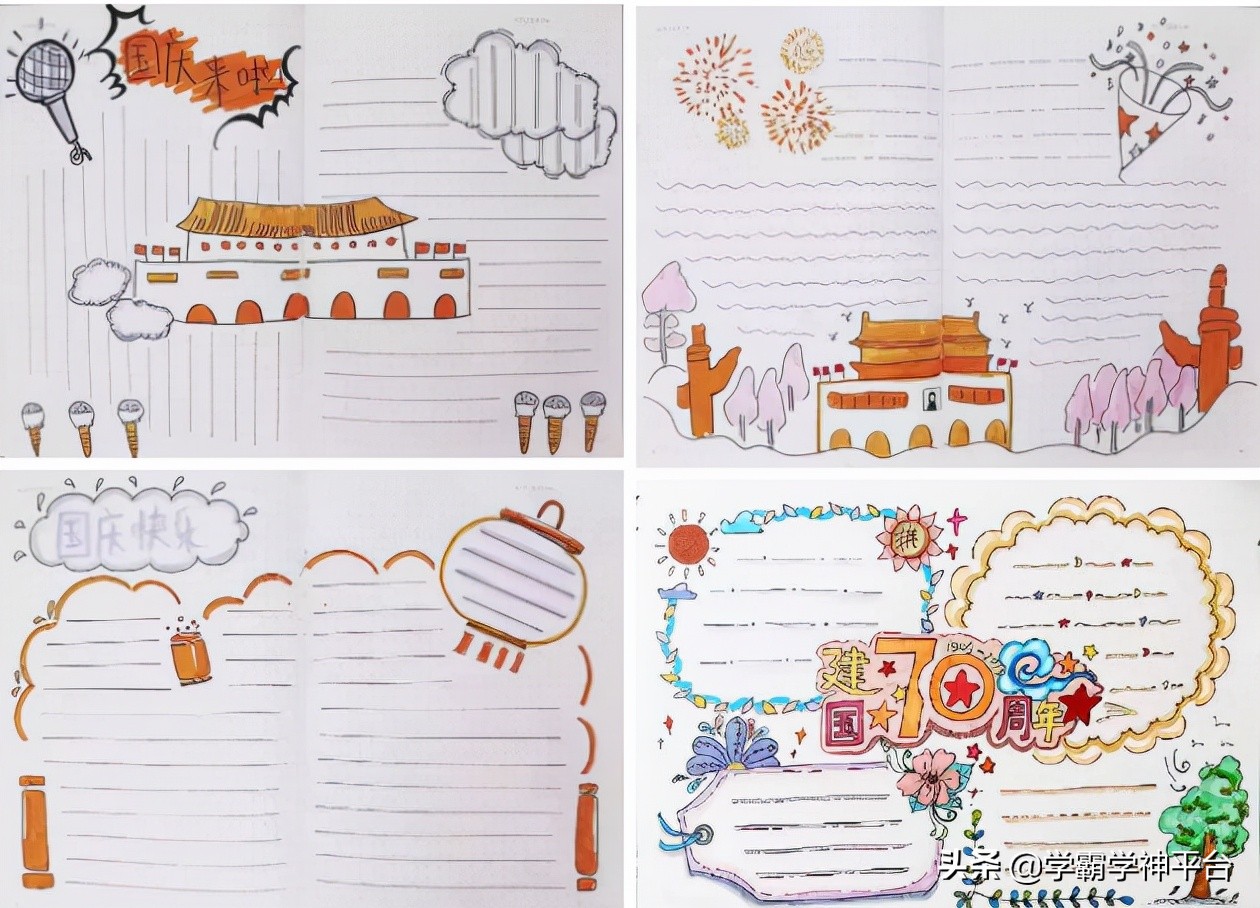 国庆来啦
国庆快乐
拼
建
70
国
周年
头条 @学霸学神平台